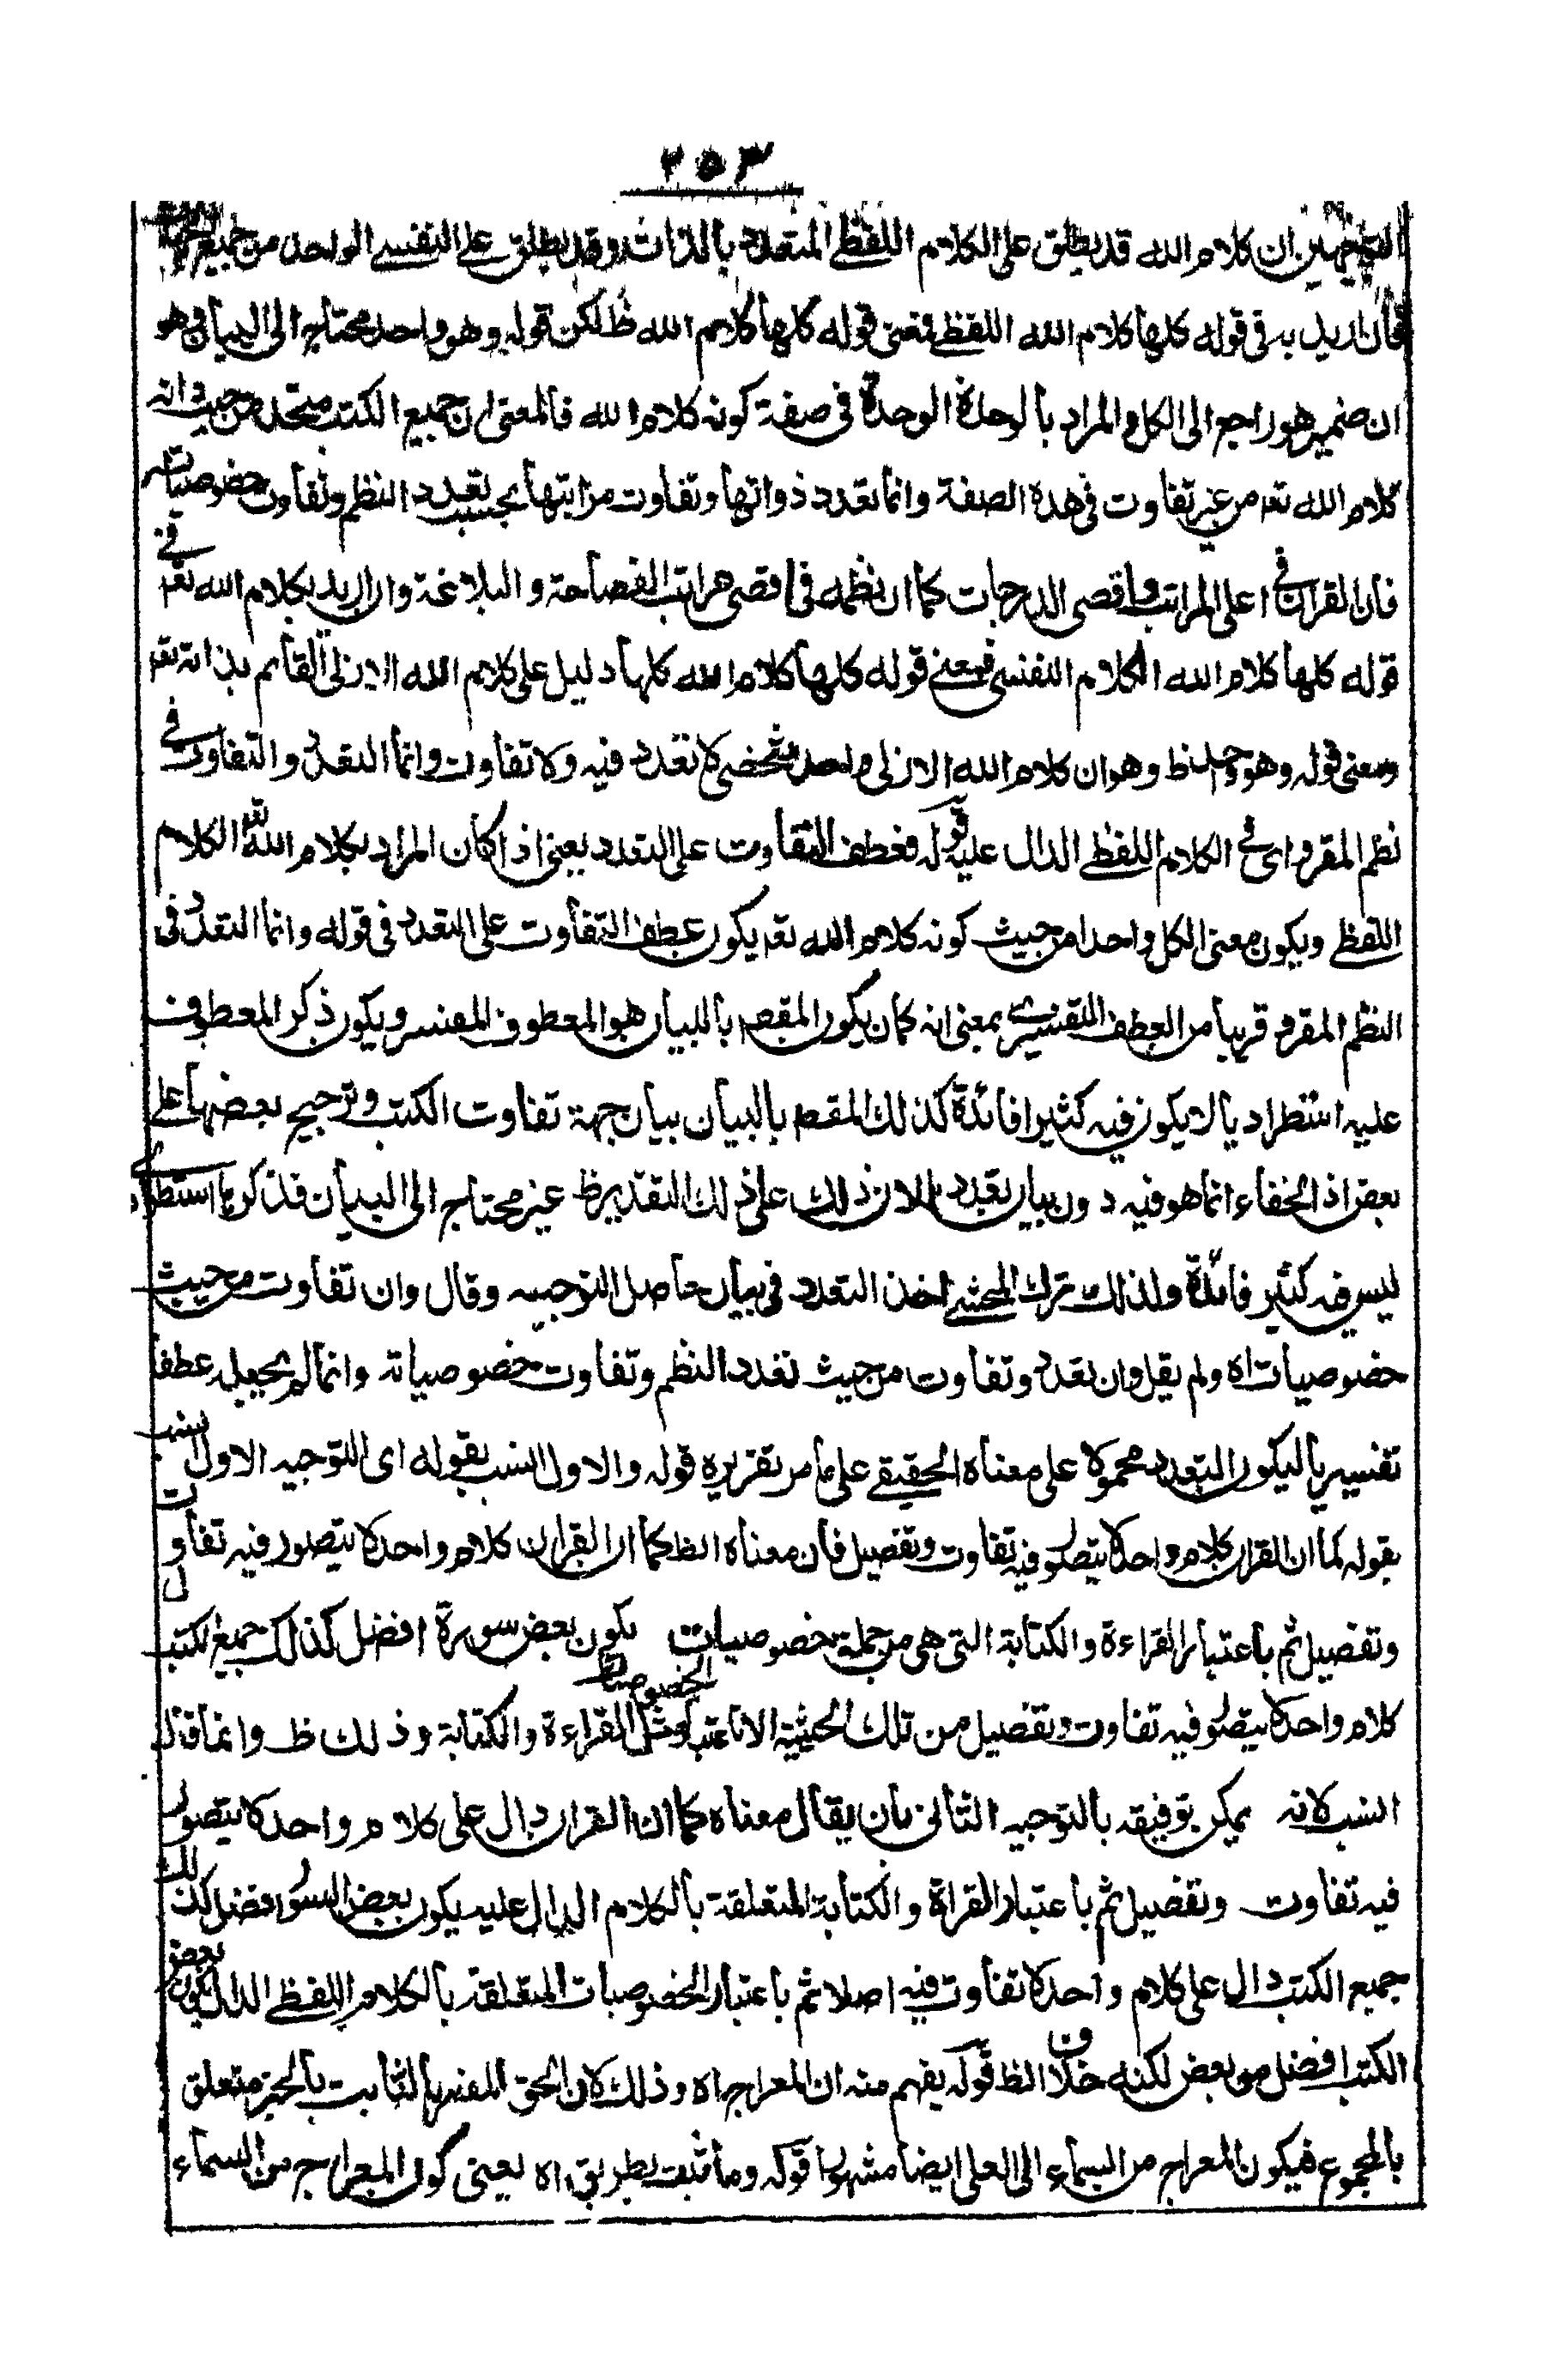 ٢٥٣
التوجيهين ان كلام الله قد يطلق على الكلام اللفظي المتعدد بالذات وقد يطلق على النفسي الواحد من جميع الجهات
فان اريد به في قوله كلها كلام الله اللفظي فمعنى قوله كلها كلام الله ظ لكن قوله وهو واحد محتاج الى البيان وهو
ان ضمير هو راجع الى الكل والمراد بالوحدة الوحدة في صفة كونه كلام الله فالمعنى ان جميع الكتب متحد من حيث انه
كلام الله تعم من غير تفاوت في هذه الصفة وانما تعدد ذواتها وتفاوت مراتبها بحسب تعدد النظم وتفاوت خصوصياته
فان القران في اعلى المراتب واقصى الدرجات كما ان نظمه في اقصى مراتب الفصاحة والبلاغة وان اريد بكلام الله تعم في
قوله كلها كلام الله الكلام النفسي فمعنى قوله كلها كلام الله كلها دليل على كلام الله الازلي القائم بذاته تعم
ومعنى قوله وهو واحد ظ وهو ان كلام الله الازلي واحد شخصي لا تعدد فيه ولا تفاوت وانما التعدد والتفاوت في
نظم المقرو اى في الكلام اللفظي الدال عليه قوله فعطف التفاوت على التعدد يعنى اذا كان المراد بكلام الله الكلام
اللفظي ويكون معنى الكل واحدا من حيث كونه كلام الله تعم يكون عطف التفاوت على التعدد في قوله وانما التعدد في
النظم المقرو قريبا من العطف التفسيري بمعنى انه كما ان يكون المقصم بالبيان هو المعطوف المفسر ويكون ذكر المعطوف
عليه استطراديا لا يكون فيه كثير افائدة كذلك المقصم بالبيان بيان جهة تفاوت الكتب وترجيح بعضها على
بعض اذ الخفاء انما هو فيه دون بيان تعدد ها لان ذلك على ذلك التقدير ظ غير محتاج الى البيان فذكرها استطرادي
ليس فيه كثير فائدة ولذلك ترك المحشي اخذ التعدد في بيان حاصل التوجيه وقال وان تفاوت من حيث
خصوصيات اه ولم يقل وان تعدد وتفاوت من حيث تعدد النظم وتفاوت خصوصياته وانما لم يجعله عطفا
تفسيريا ليكون التعدد محمولا على معناه الحقيقي على ما مر تقريره قوله والاول انسب بقوله اى التوجيه الاول انسب
بقوله كما ان القران كلام واحد لا يتصور فيه تفاوت وتفضيل فان معناه الظ كما ان القران كلام واحد لا يتصور فيه تفاوت
وتفضيل ثم باعتبار القراءة والكتابة التى هى من جملة خصوصيات يكون بعض سورة افضل كذلك جميع الكتب
كلام واحد لا يتصور فيه تفاوت وتفضيل من تلك الحيثية الا باعتبار الخصوصيات مثل القراءة والكتابة وذلك ظ وانما قال
انسب لانه يمكن توفيقه بالتوجيه الثانى بان يقال معناه كما ان القران دال على كلام واحد لا يتصور
فيه تفاوت وتفضيل ثم باعتبار القراة والكتابة المتعلقة بالكلام الدال عليه يكون بعض السور افضل كذلك
جميع الكتب دال على كلام واحد لا تفاوت فيه اصلا ثم باعتبار الخصوصيات المتعلقة بالكلام اللفظي الدال يكون بعض
الكتب افضل من بعض لكنه خلاف الظ قوله يفهم منه ان المعراج اه وذلك لان الحق المفسر بالثابت بالخبر متعلق
بالمجموع فيكون المعراج من السماء الى العلى ايضا مشهورا قوله وما ثبت بطريق اه يعنى كون المعراج من السماء